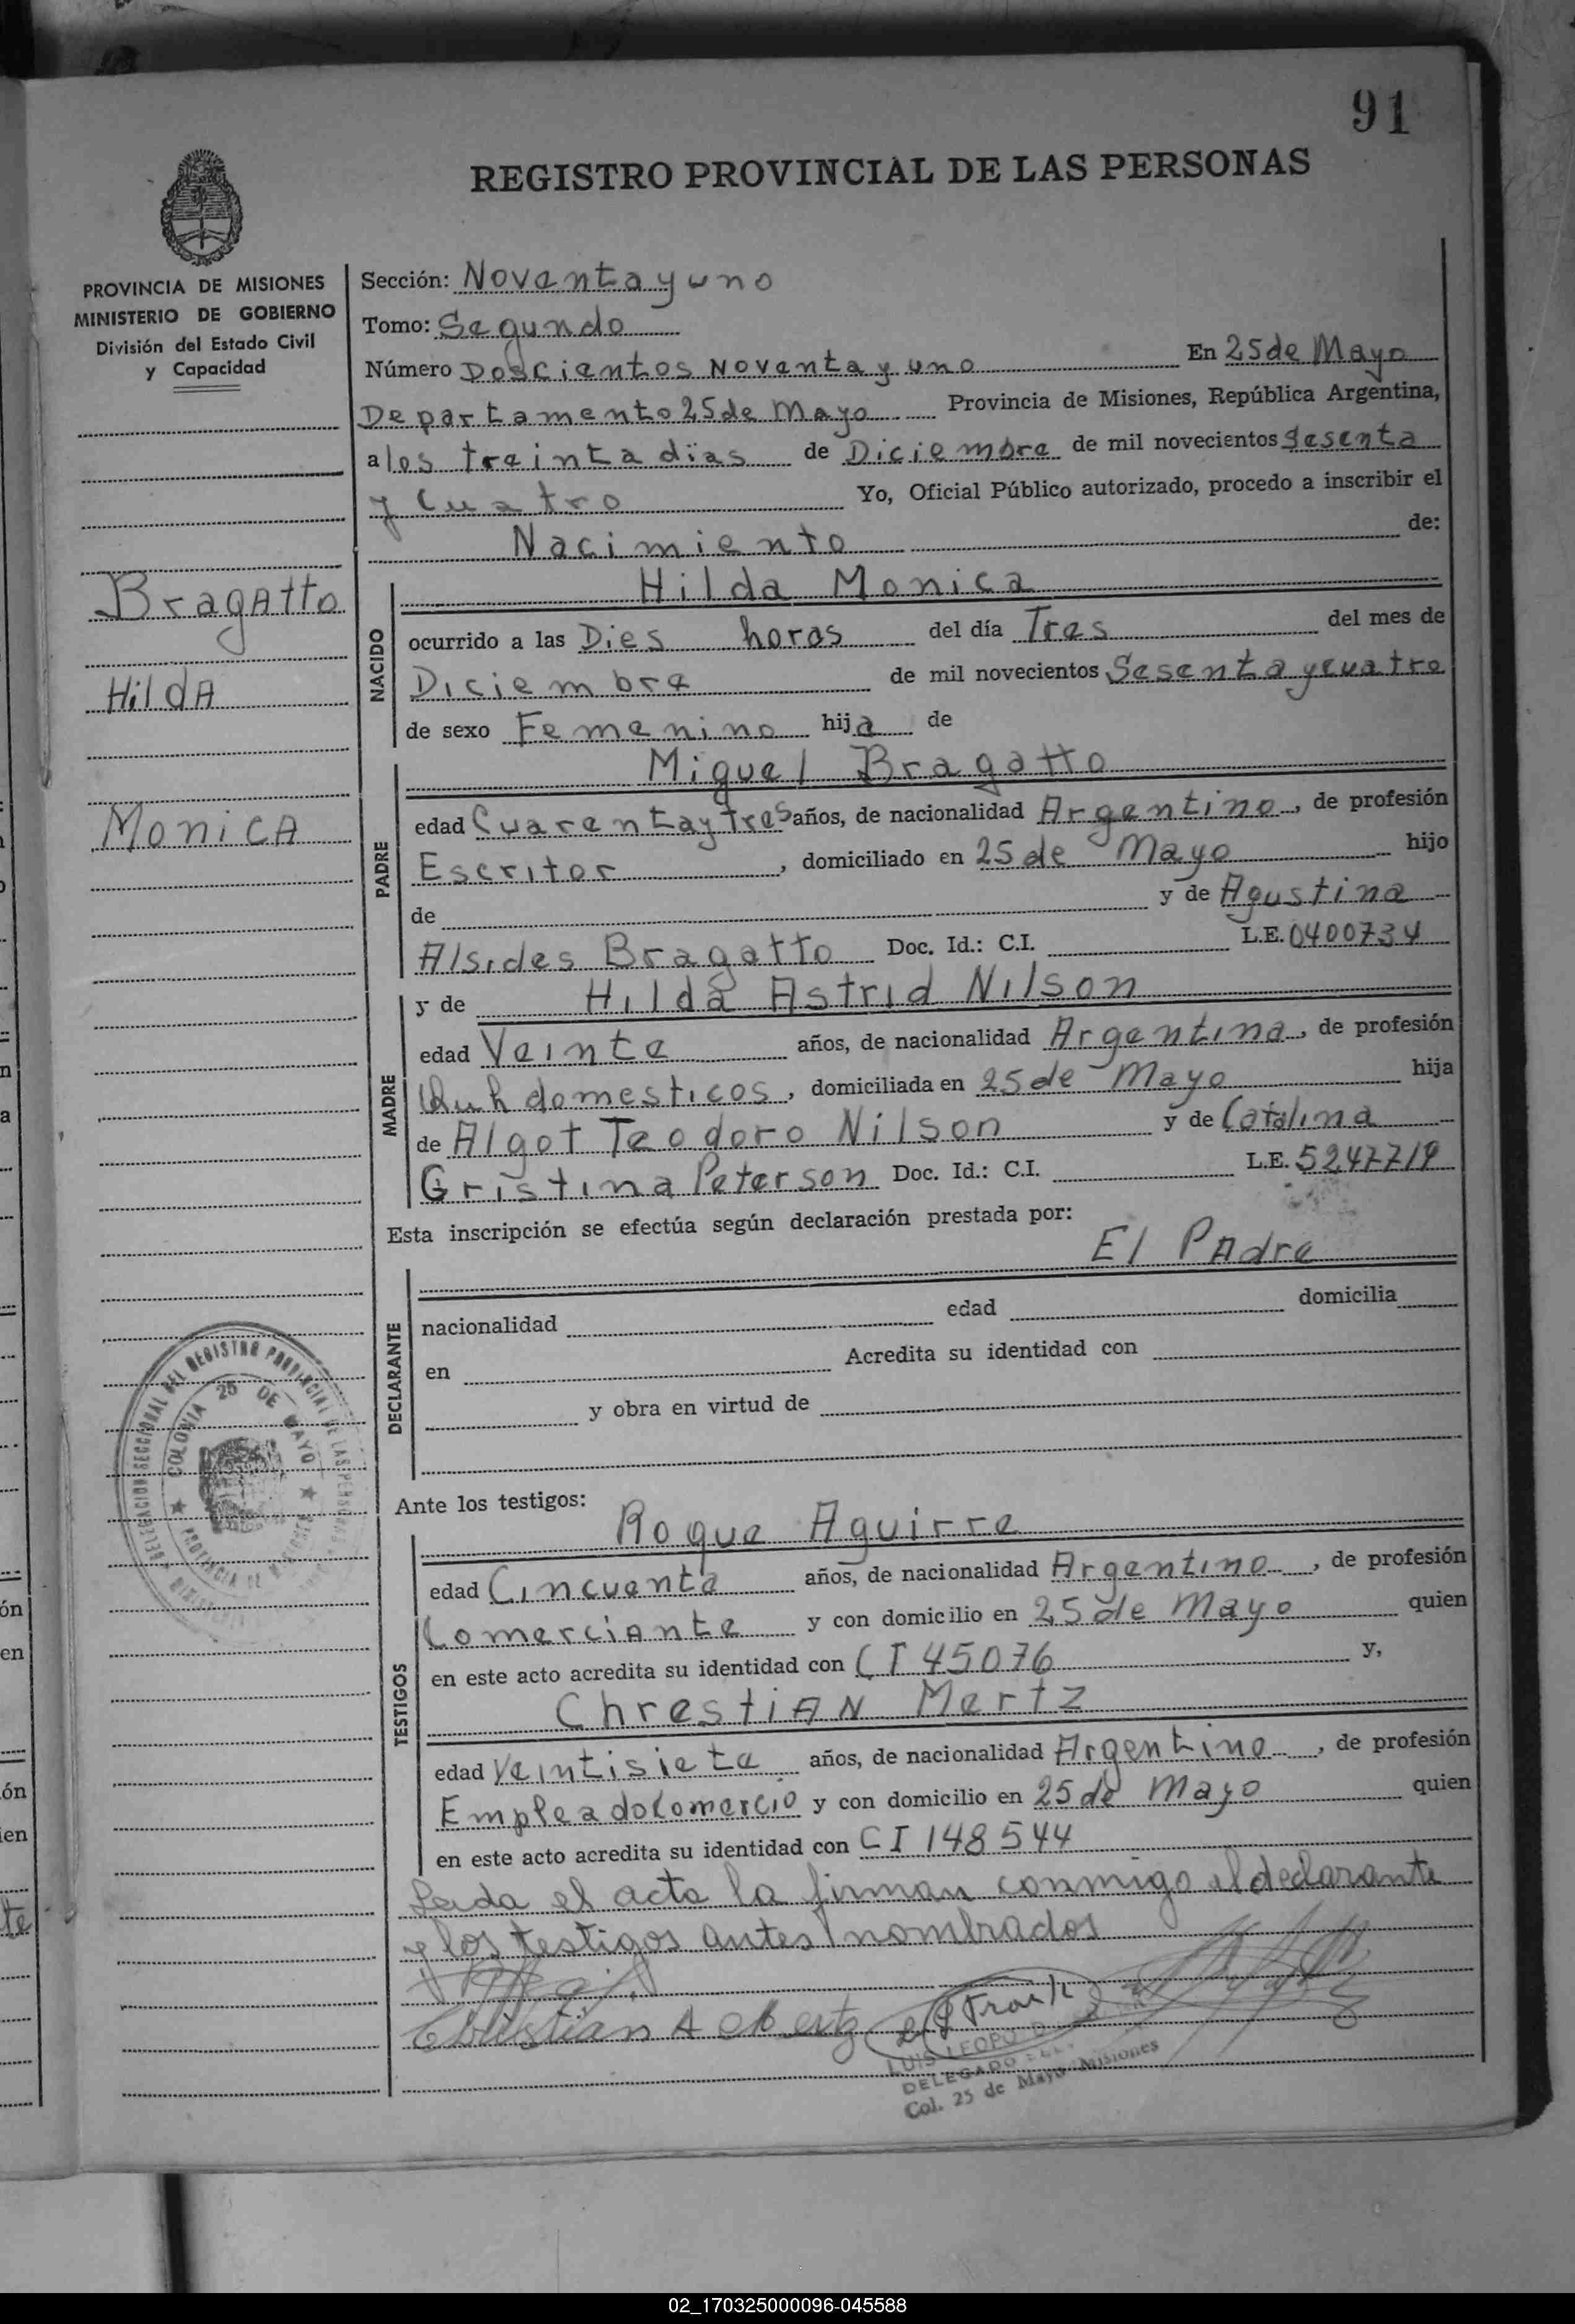 91
REGISTRO PROVINCIAL DE LAS PERSONAS
PROVINCIA DE MISIONES
MINISTERIO DE GOBIERNO
División del Estado Civil
y Capacidad
Bragatto
Hilda
Monica
Sección: Noventa y uno
Tomo: Segundo
Número Doscientos Noventa y uno En 25 de Mayo
Departamento 25 de Mayo Provincia de Misiones, República Argentina,
a los treinta días de Diciembre de mil novecientos sesenta
y cuatro Yo, Oficial Público autorizado, procedo a inscribir el
Nacimiento de:
NACIDO
Hilda Monica
ocurrido a las Dies horas del día Tres del mes de
Diciembre de mil novecientos Sesenta y cuatro
de sexo Femenino hija de
PADRE
Miguel Bragatto
edad Cuarenta y Tres años, de nacionalidad Argentino, de profesión
Escritor, domiciliado en 25 de Mayo hijo
de y de Agustina
Alsides Bragatto Doc. Id.: C.I. L.E. 0400734
MADRE
y de Hilda Astrid Nilson
edad Veinte años, de nacionalidad Argentina, de profesión
domesticos, domiciliada en 25 de Mayo hija
de Algot Teodoro Nilson y de Catalina
Gristina Peterson Doc. Id.: C.I. L.E. 5247719
Esta inscripción se efectúa según declaración prestada por:
El Padre
DECLARANTE
nacionalidad edad domicilia
en Acredita su identidad con
y obra en virtud de
Ante los testigos:
TESTIGOS
Roque Aguirre
edad Cincuenta años, de nacionalidad Argentino, de profesión
Comerciante y con domicilio en 25 de Mayo quien
en este acto acredita su identidad con CI 45076 y,
Chrestian Mertz
edad Veintisiete años, de nacionalidad Argentino, de profesión
Empleado Comercio y con domicilio en 25 de Mayo quien
en este acto acredita su identidad con CI 148544
Leida el acta la firman conmigo el declarante
y los testigos antes nombrados
Christian A Mertz
LUIS LEOPOLDO
DELEGADO
Col. 25 de Mayo Misiones
DELEGACION SECCIONAL DEL REGISTRO PROVINCIAL DE LAS PERSONAS
COLONIA 25 DE MAYO
PROVINCIA DE MISIONES
02_170325000096-045588